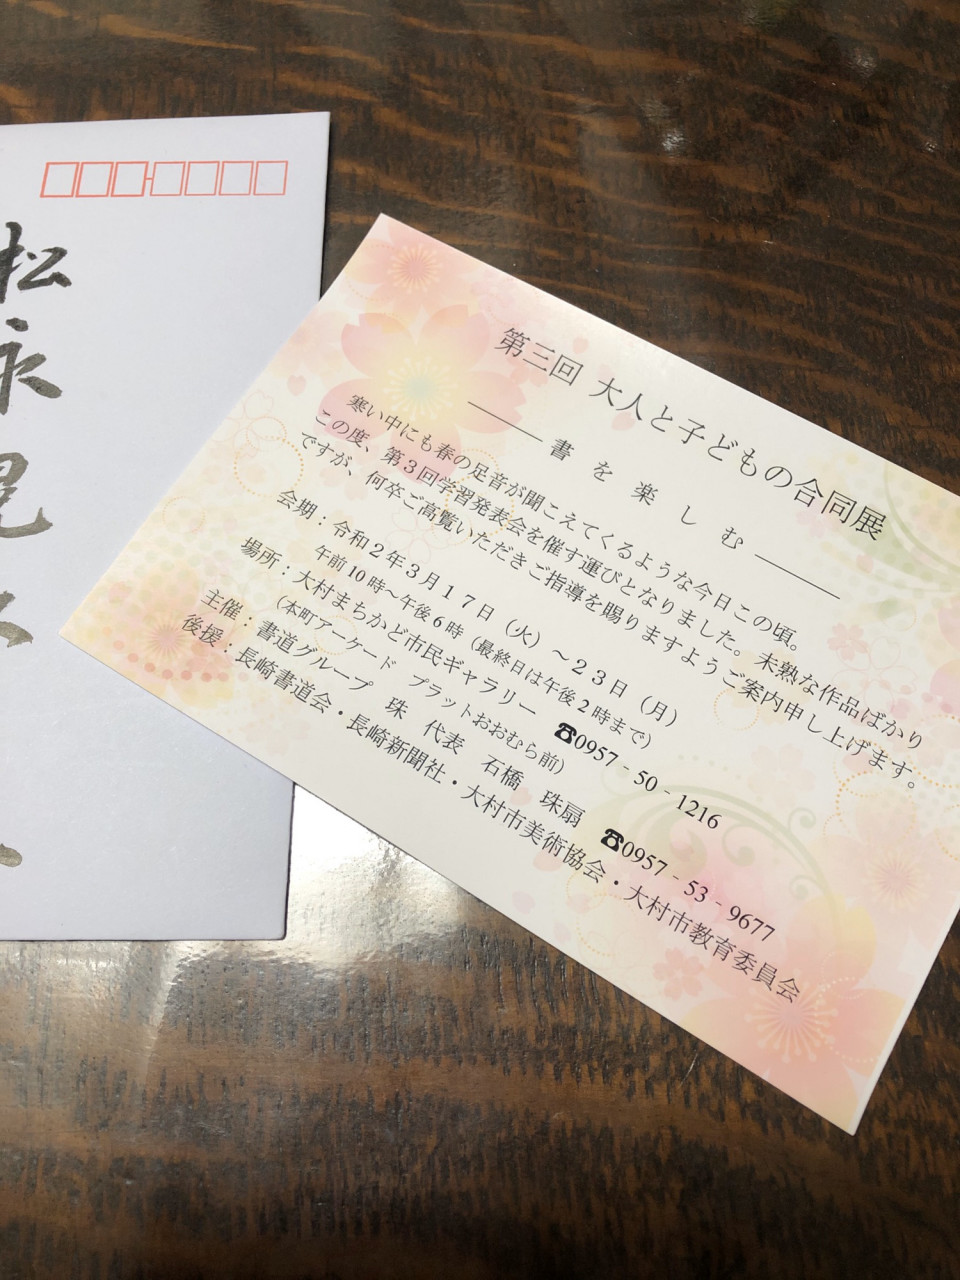 松永
第三回 大人と子どもの合同展
――― 書 を 楽 し む ―――
寒い中にも春の足音が聞こえてくるような今日この頃。
この度、第3回学習発表会を催す運びとなりました。未熟な作品ばかり
ですが、何卒ご高覧いただきご指導を賜りますようご案内申し上げます。
会期：令和2年3月17日（火）～23日（月）
午前10時～午後6時（最終日は午後2時まで）
場所：大村まちかど市民ギャラリー ☎0957-50-1216
（本町アーケード プラットおおむら前）
主催：書道グループ 珠 代表 石橋 珠扇 ☎0957-53-9677
後援：長崎書道会・長崎新聞社・大村市美術協会・大村市教育委員会